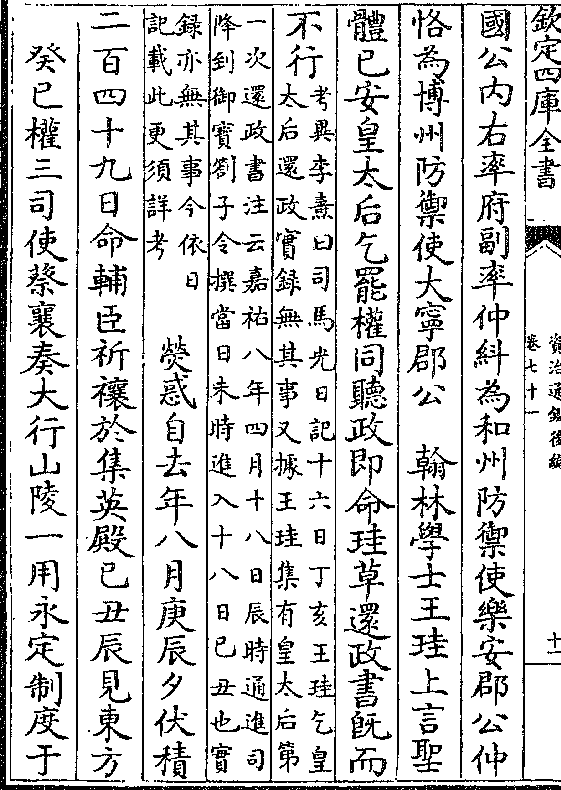 欽定四庫全書
資治通鑑後編
卷七十一
十一
國公内右率府副率仲糾為和州防禦使樂安郡公仲
恪為博州防禦使大寧郡公　翰林學士王珪上言聖
體已安皇太后乞罷權同聽政即命珪草還政書旣而
不行
考異李燾曰司馬光日記十六日丁亥王珪乞皇
太后還政實録無其事又據王珪集有皇太后第
一次還政書注云嘉祐八年四月十八日辰時通進司
降到御寶劄子令撰當日未時進入十八日己丑也實
録亦無其事今依日
記載此更須詳考
熒惑自去年八月庚辰夕伏積
二百四十九日命輔臣祈禳於集英殿已丑辰見東方
癸已權三司使蔡襄奏大行山陵一用永定制度于